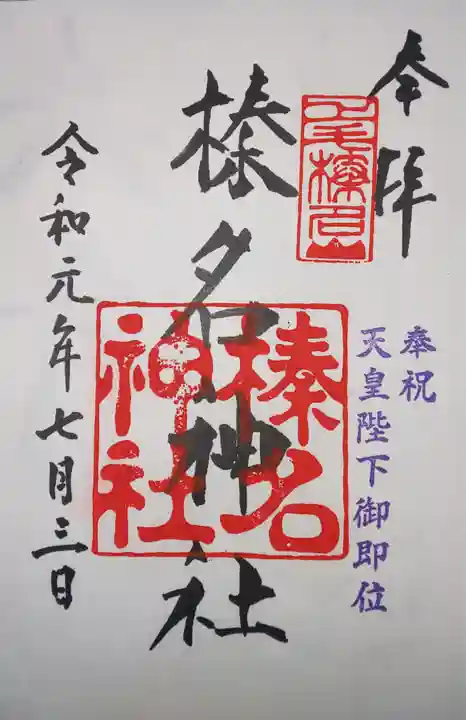 奉拝
奉祝
天皇陛下御即位
榛名神社
榛名
神社
令和元年七月三日